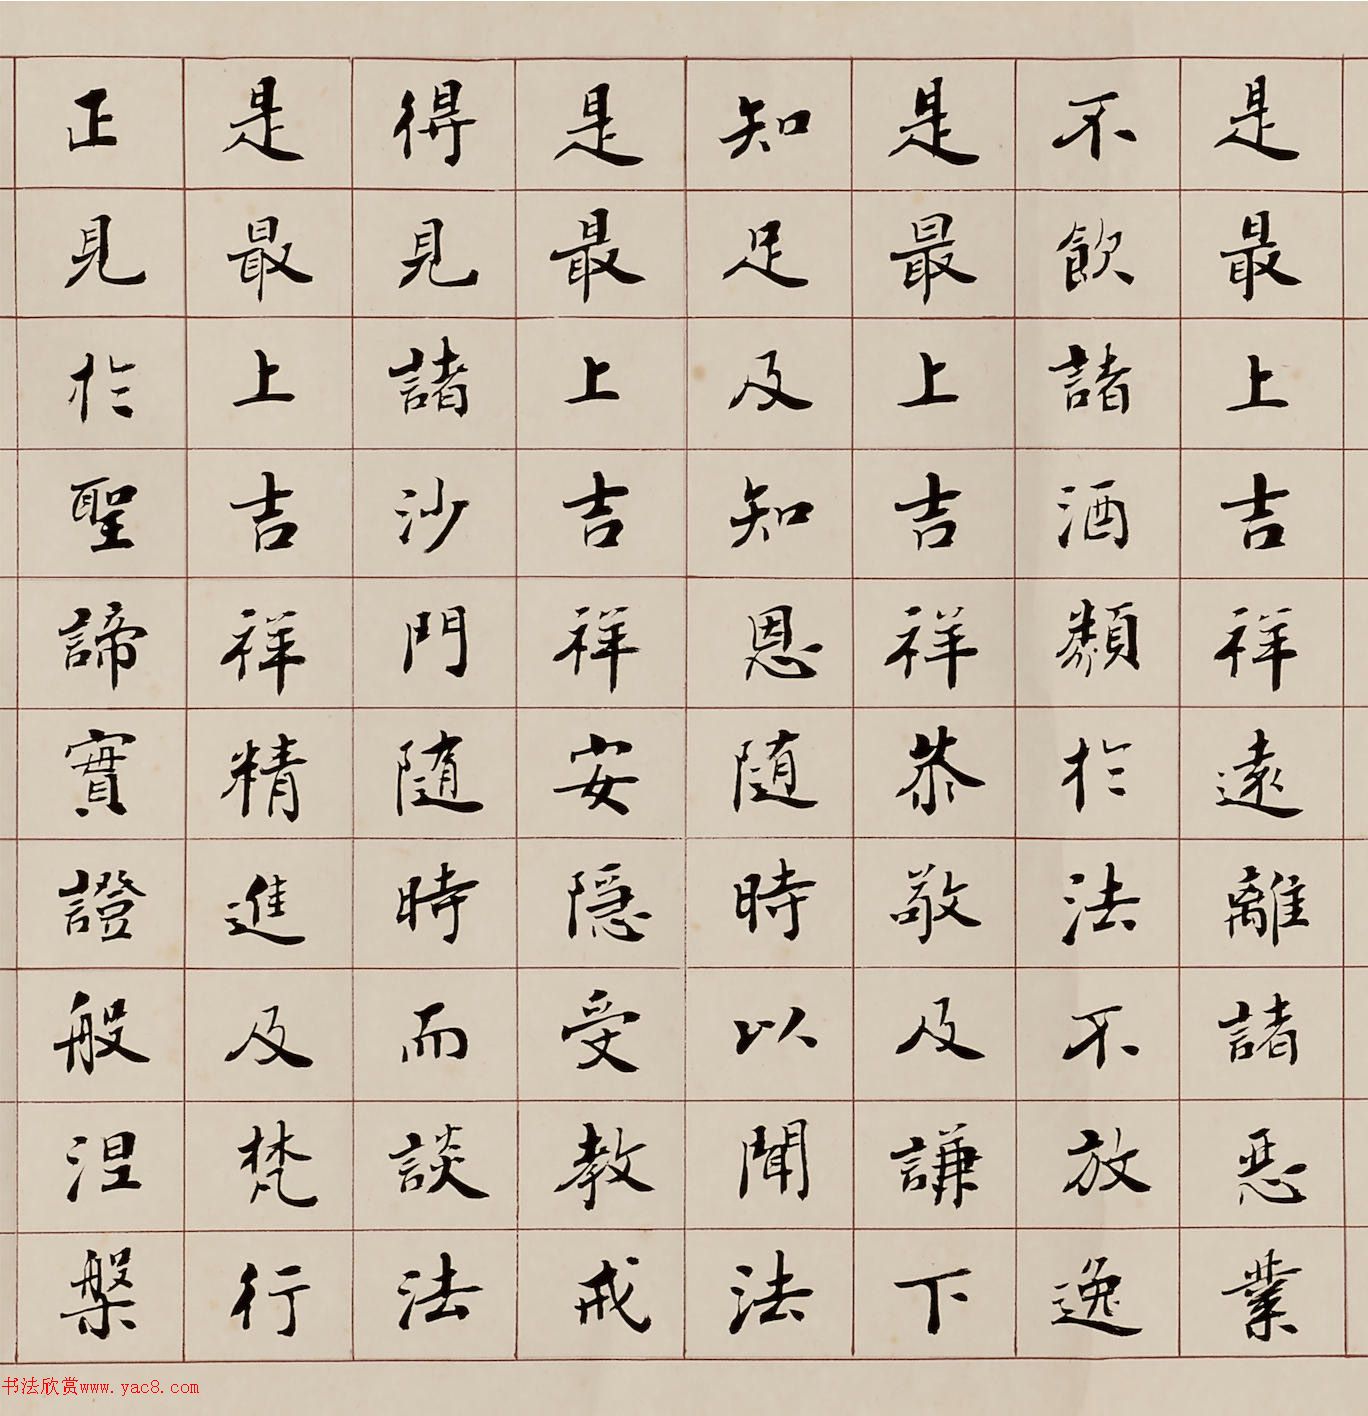 是最上吉祥遠離諸惡業
不飲諸酒類於法不放逸
是最上吉祥恭敬及謙下
知足及知恩隨時以聞法
是最上吉祥安隱受教戒
得見諸沙門隨時而談法
是最上吉祥精進及梵行
正見於聖諦實證般涅槃
书法欣赏www.yac8.com